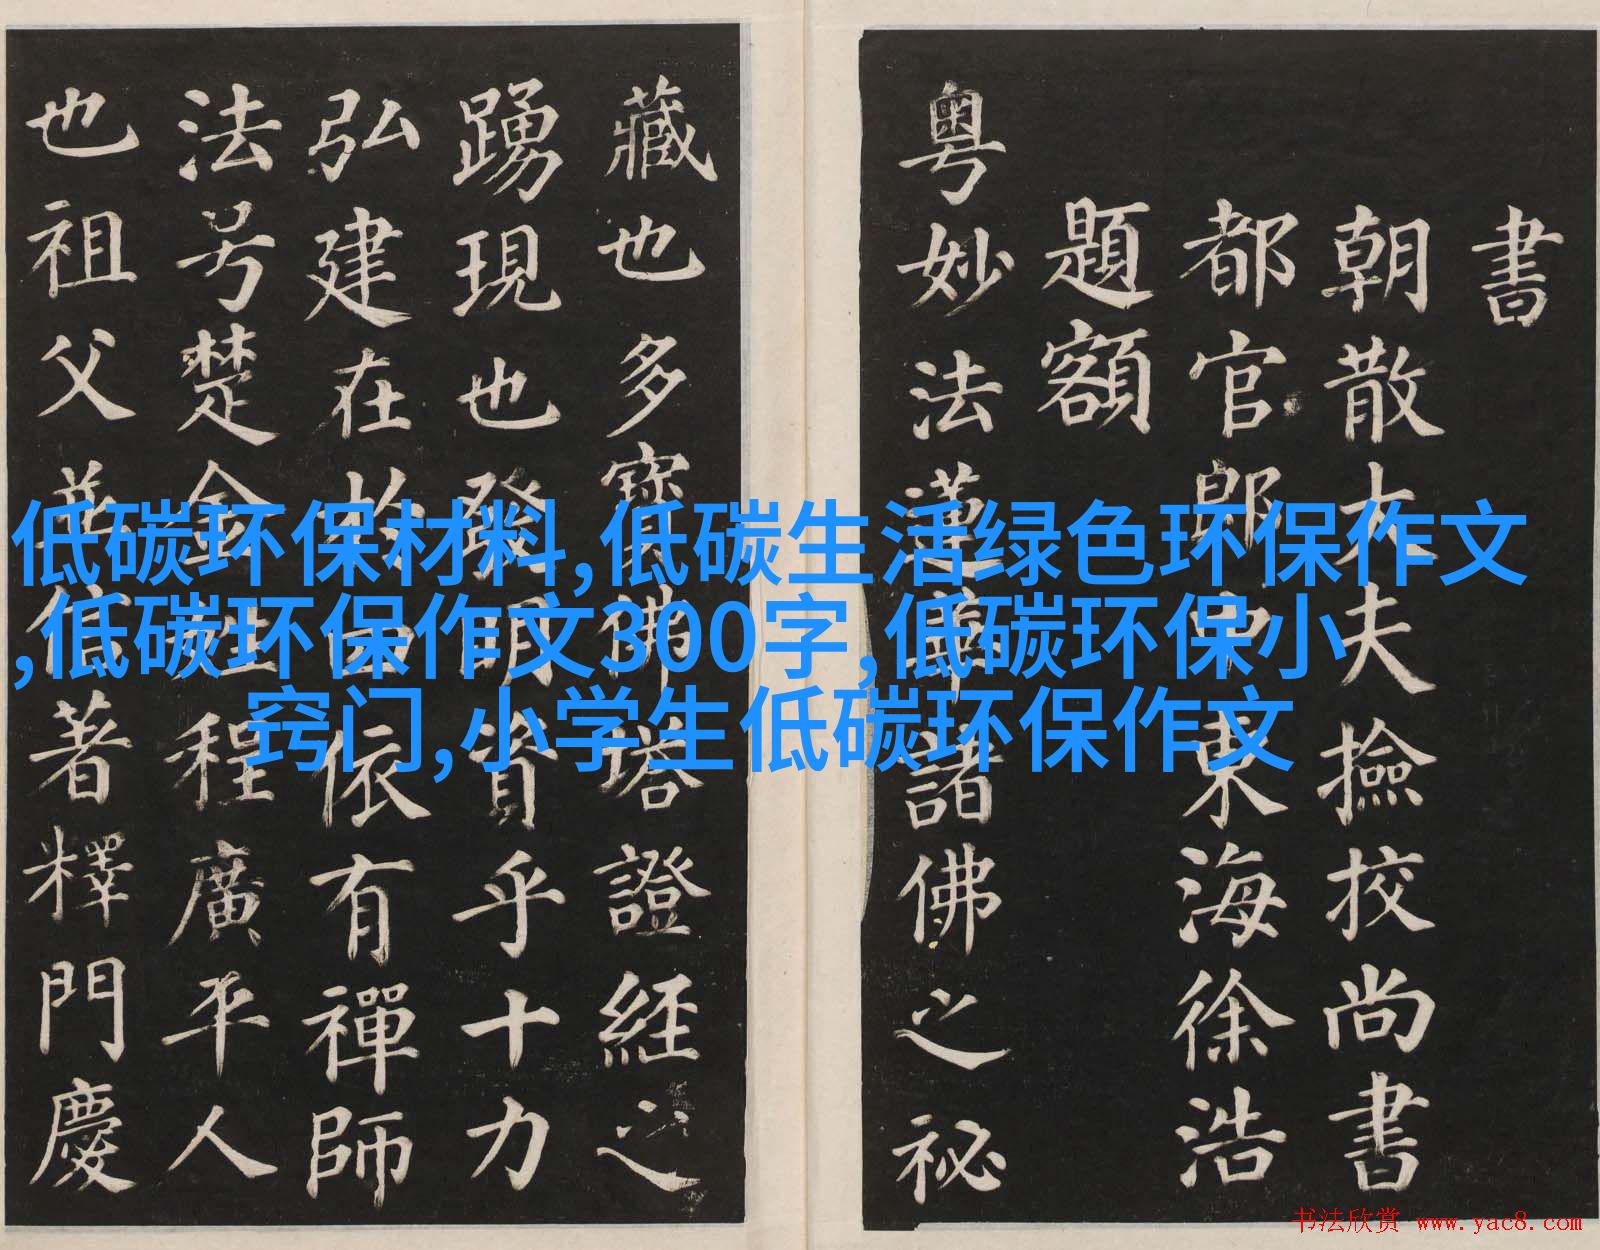 書
朝散大夫撿挍尚書
都官郎中東海徐浩
題額
粤妙法蓮華諸佛之秘
藏也多寶佛塔證經之
踴現也發明資乎十力
弘建在於四依有禪師
法号楚金姓程廣平人
也祖父並信著釋門慶
低碳环保材料,低碳生活绿色环保作文
,低碳环保作文300字,低碳环保小
窍门,小学生低碳环保作文
书法欣赏 www.yac8.com